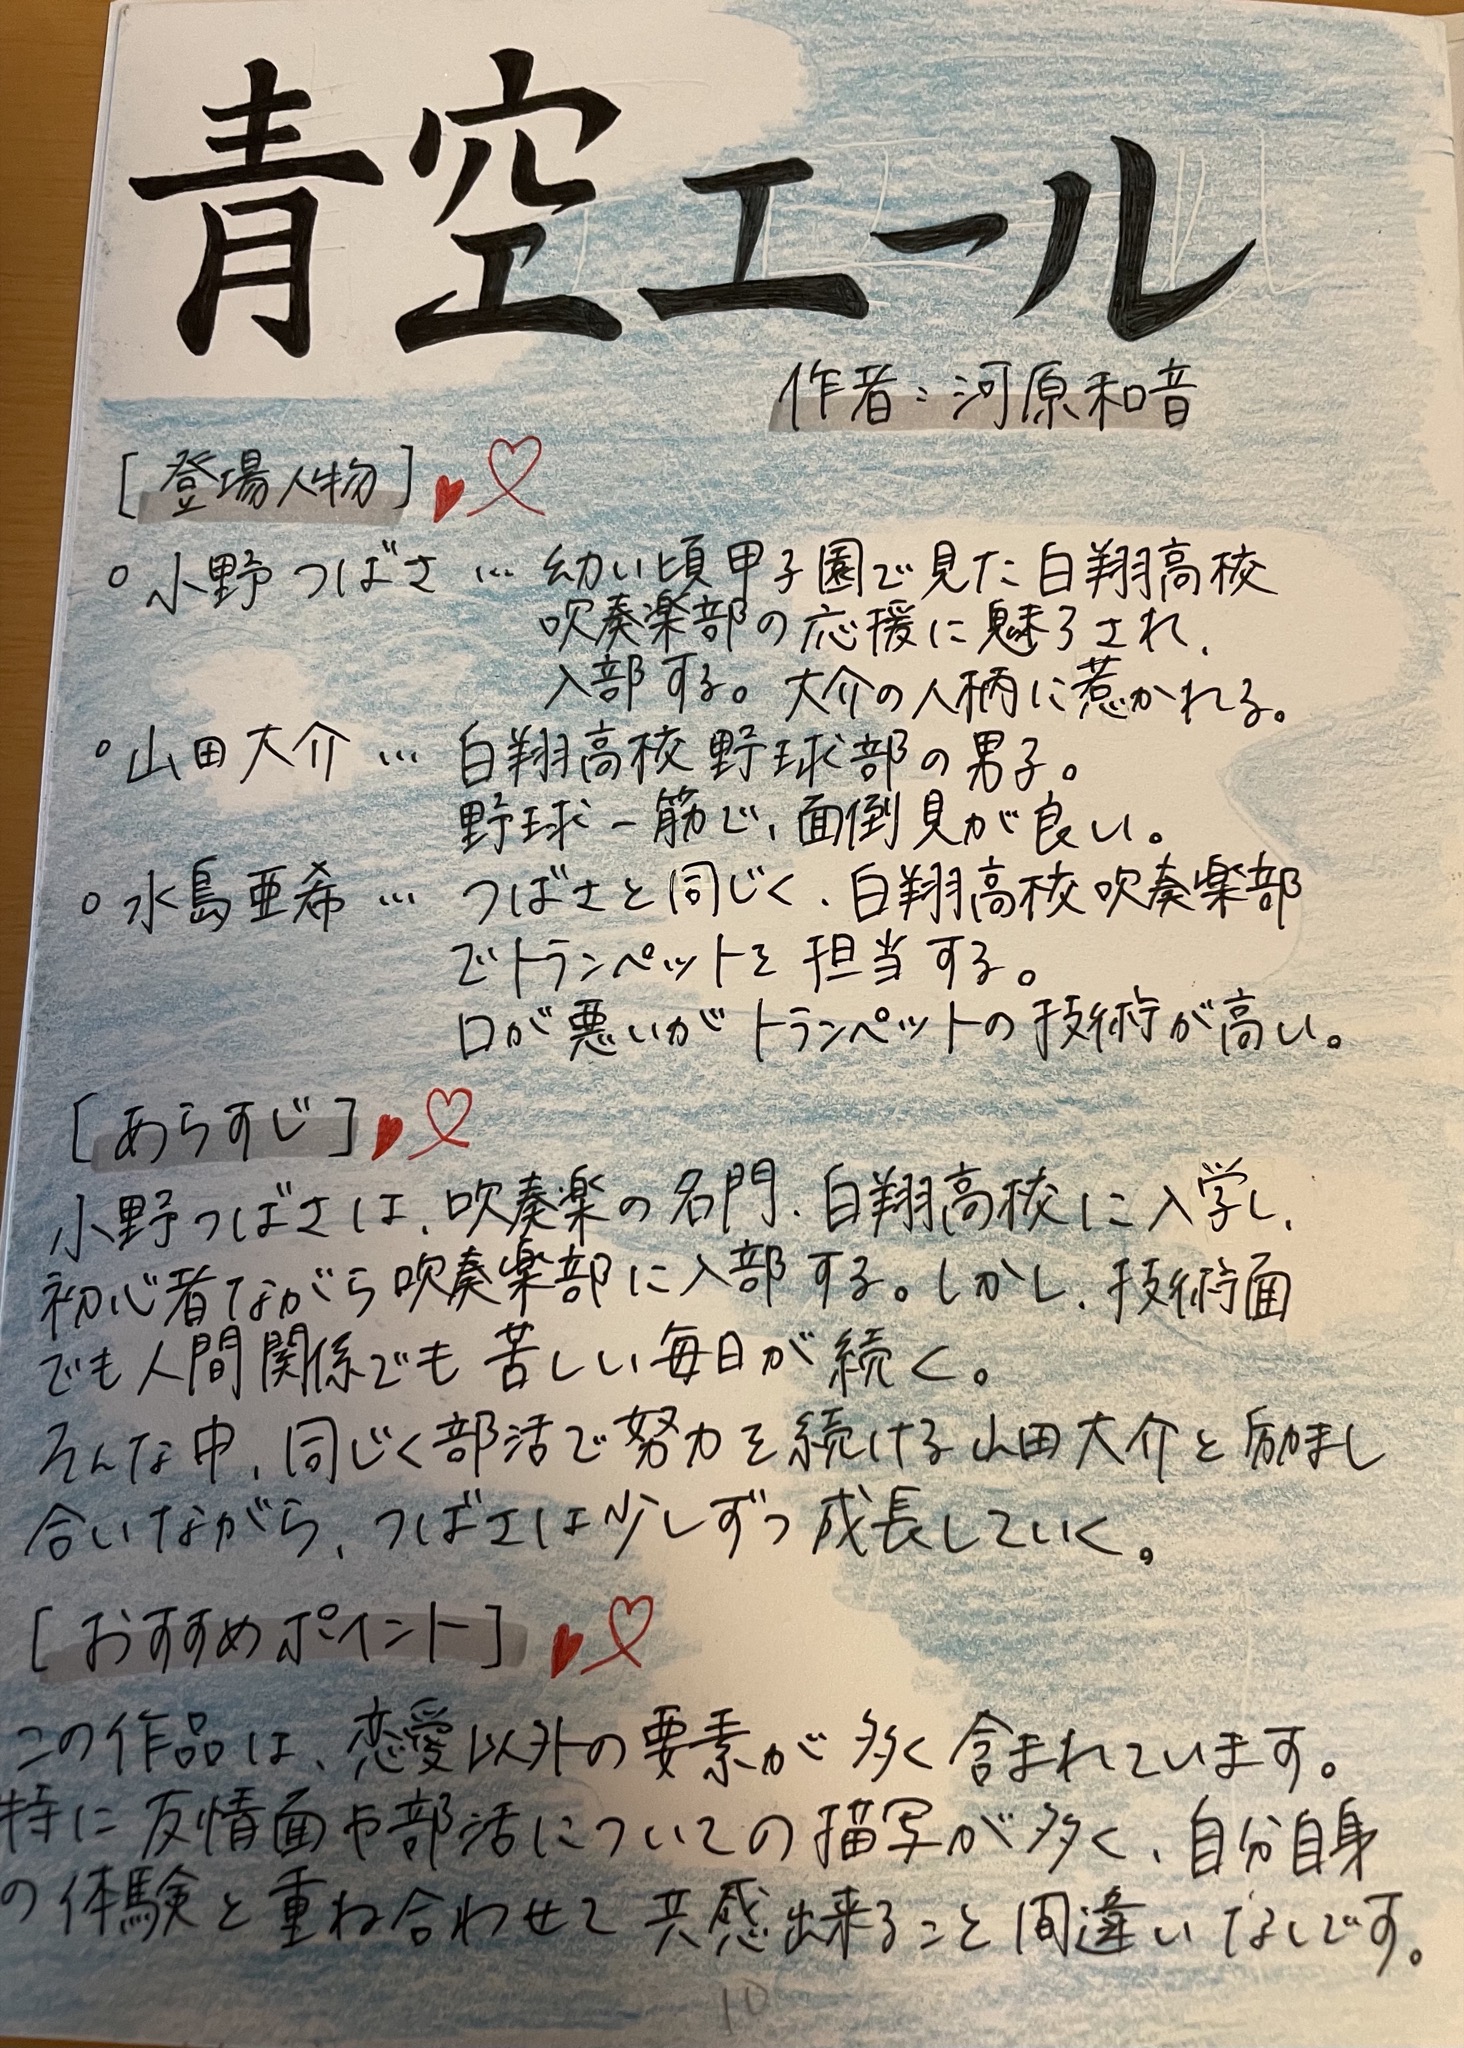 青空エール
作者:河原和音
[登場人物]
○小野つばさ…幼い頃甲子園で見た白翔高校
吹奏楽部の応援に魅了され、
入部する。大介の人柄に惹かれる。
○山田大介…白翔高校野球部の男子。
野球一筋で、面倒見が良い。
○水島亜希…つばさと同じく、白翔高校吹奏楽部
でトランペットを担当する。
口が悪いがトランペットの技術が高い。
[あらすじ]
小野つばさは、吹奏楽の名門、白翔高校に入学し、
初心者ながら吹奏楽部に入部する。しかし、技術面
でも人間関係でも苦しい毎日が続く。
そんな中、同じく部活で努力を続ける山田大介と励まし
合いながら、つばさは少しずつ成長していく。
[おすすめポイント]
この作品は、恋愛以外の要素が多く含まれています。
特に友情面や部活についての描写が多く、自分自身
の体験と重ね合わせて共感出来ること間違いなしです。
10